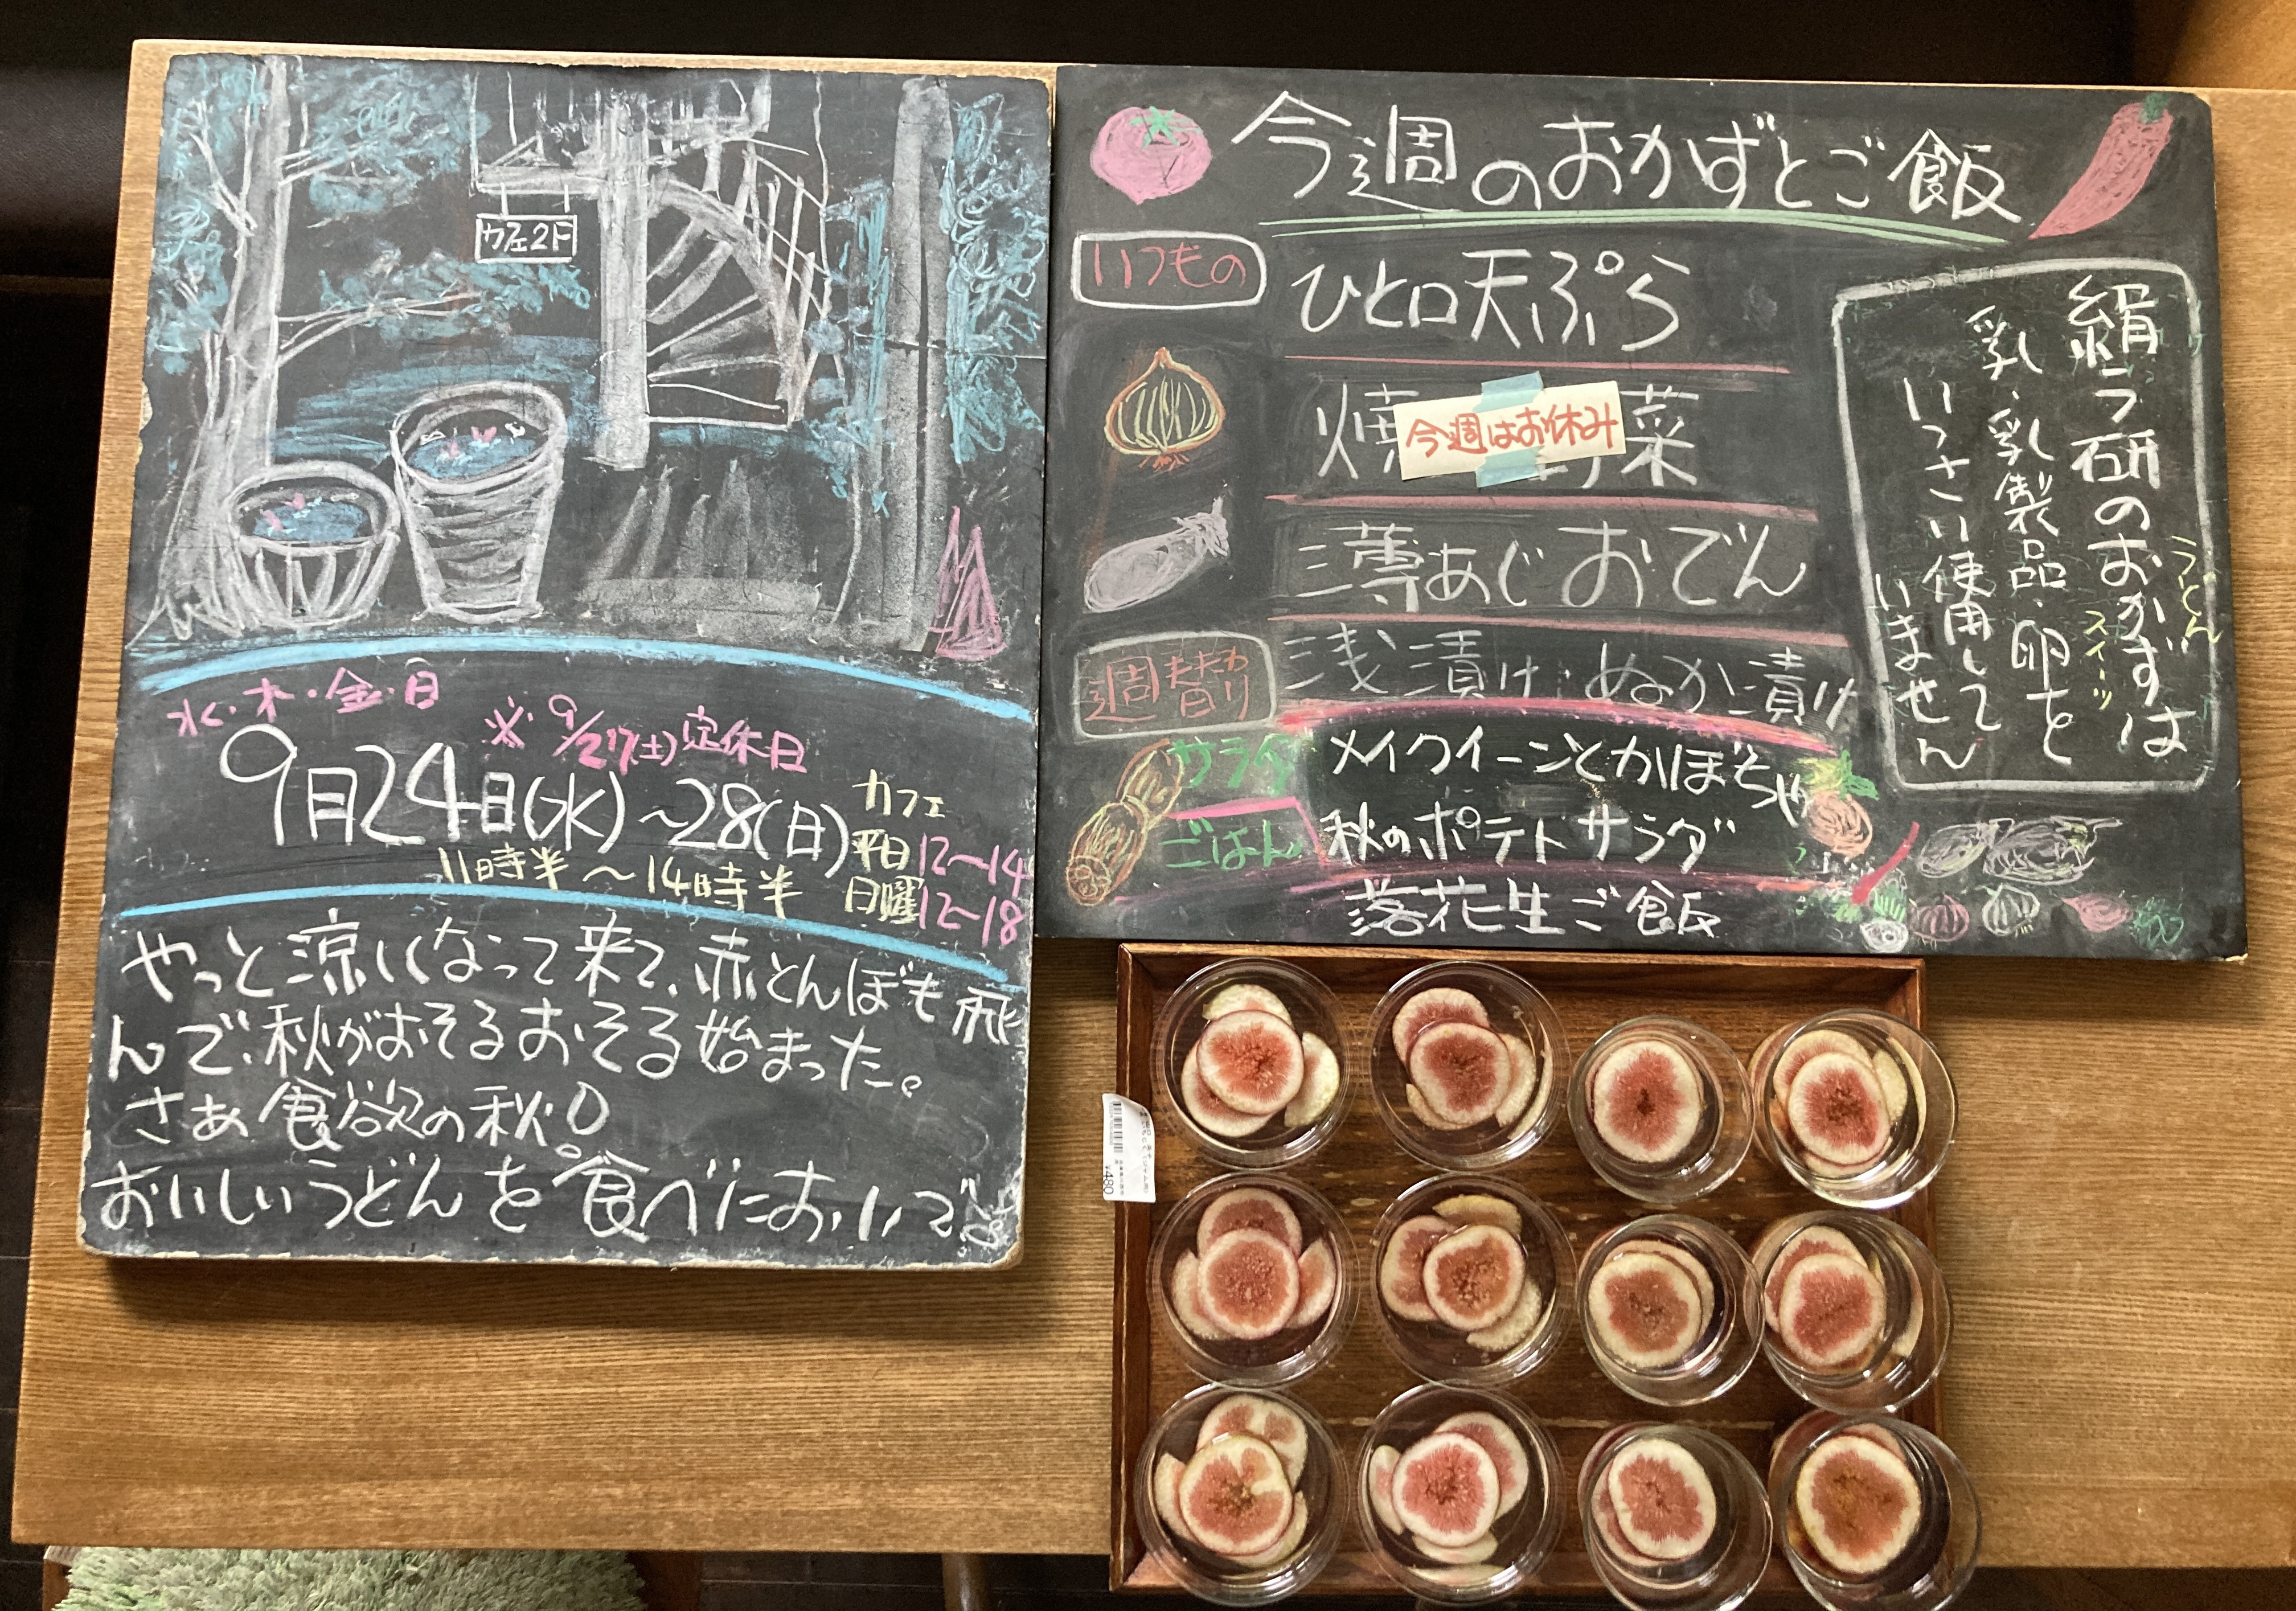 カフェ2F
水・木・金・日
※9/27(土)定休日
9月24日(水)～28(日)
11時半～14時半
カフェ
平日12～14
日曜12～18
やっと涼しくなって来て、赤とんぼも飛
んで、秋がおそるおそる始まった。
さぁ食欲の秋！
おいしいうどんを食べにおいで
今週のおかずとご飯
いつもの
ひと口天ぷら
今週はお休み
薄あじおでん
週替り
浅漬け・ぬか漬け
サラダ
メイクイーンとかぼちゃ
秋のポテトサラダ
ごはん
落花生ご飯
絹ラ研のおかずは
うどん
スイーツ
乳・乳製品・卵を
いっさい使用して
いません
¥480